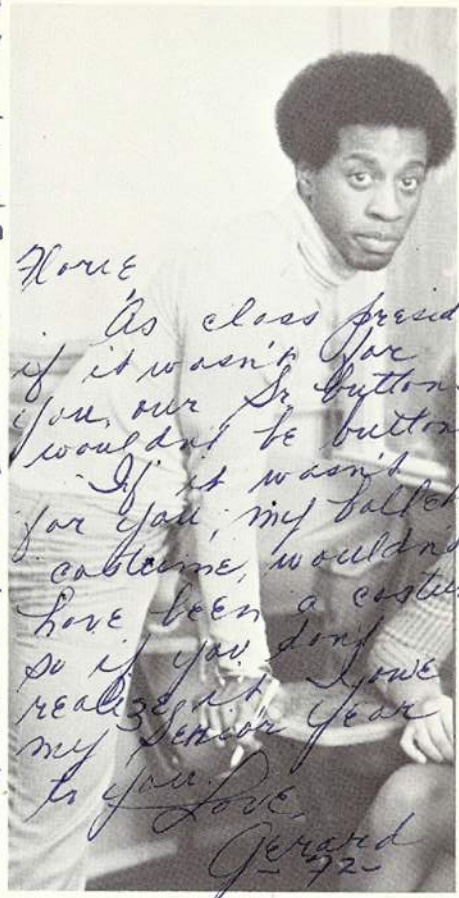 Florie,
As class presid
if it wasn't for
you, our Sr button
wouldnt be button
If it wasn't
for you, my ballet
costume, wouldn't
have been a costu
so if you dont
realize it I owe
my Senior Year
to you.
Love,
Gerard
- 72 -